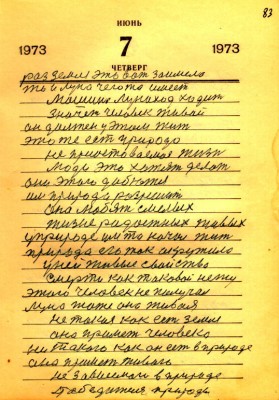 83
ИЮНЬ
1973 7 1973
ЧЕТВЕРГ
раз земля это вот заимела
то и луна чегота имеет
Машина Луноход ходит
значет человек живой
он должен у этом жит
это же ест природа
не приостоваемое жизн
люди это хотят делат
они этого добются
им природа розрешит
Она любят смелых
жизне радостных живых
у природе им то качы жит
природа его так окружило
у ней живые свойства
Смерти как таковой нету
этого человек не получал
Луна тоже она живая
не такая как ест земля
она примет человека
не такого как он ест в природе
она примет живого
не зависемого в природе
победителя природы